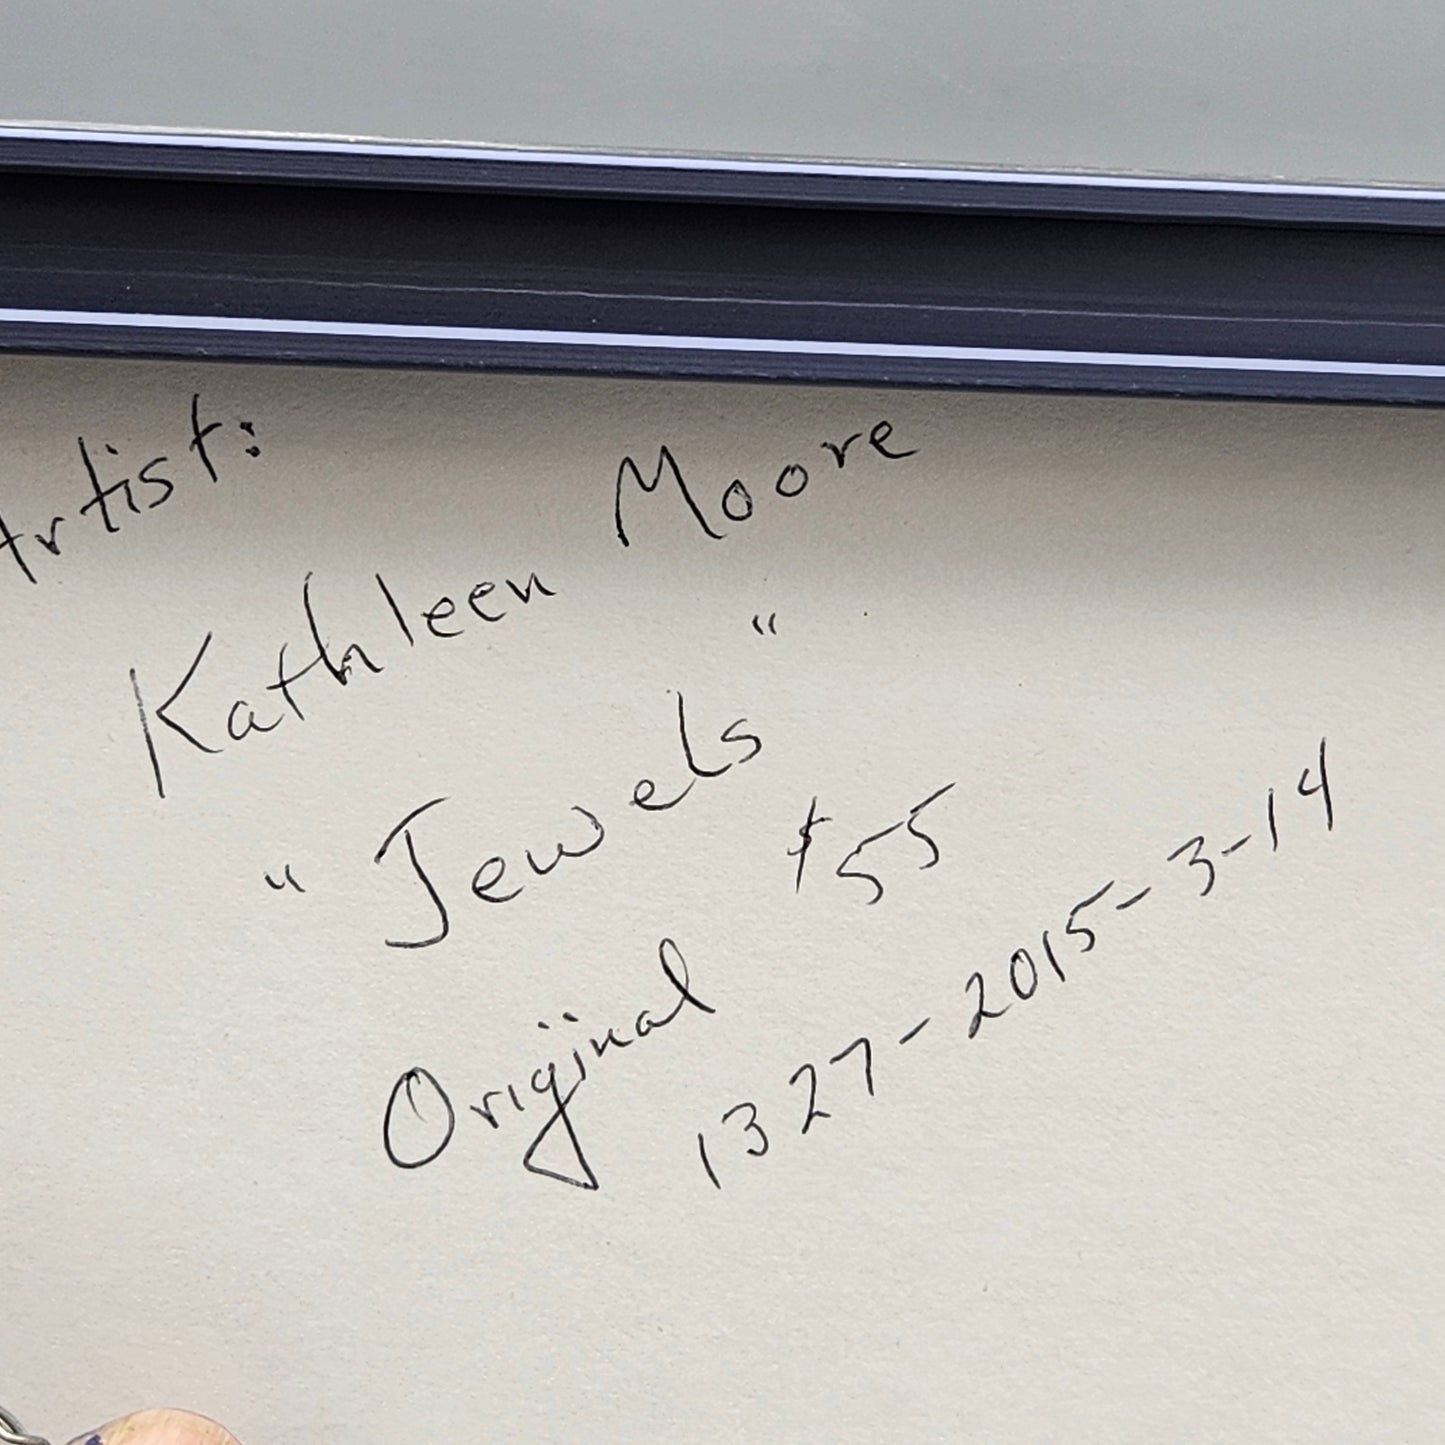 Artist:
Kathleen Moore
"Jewels"
Original $55
1327-2015-3-14